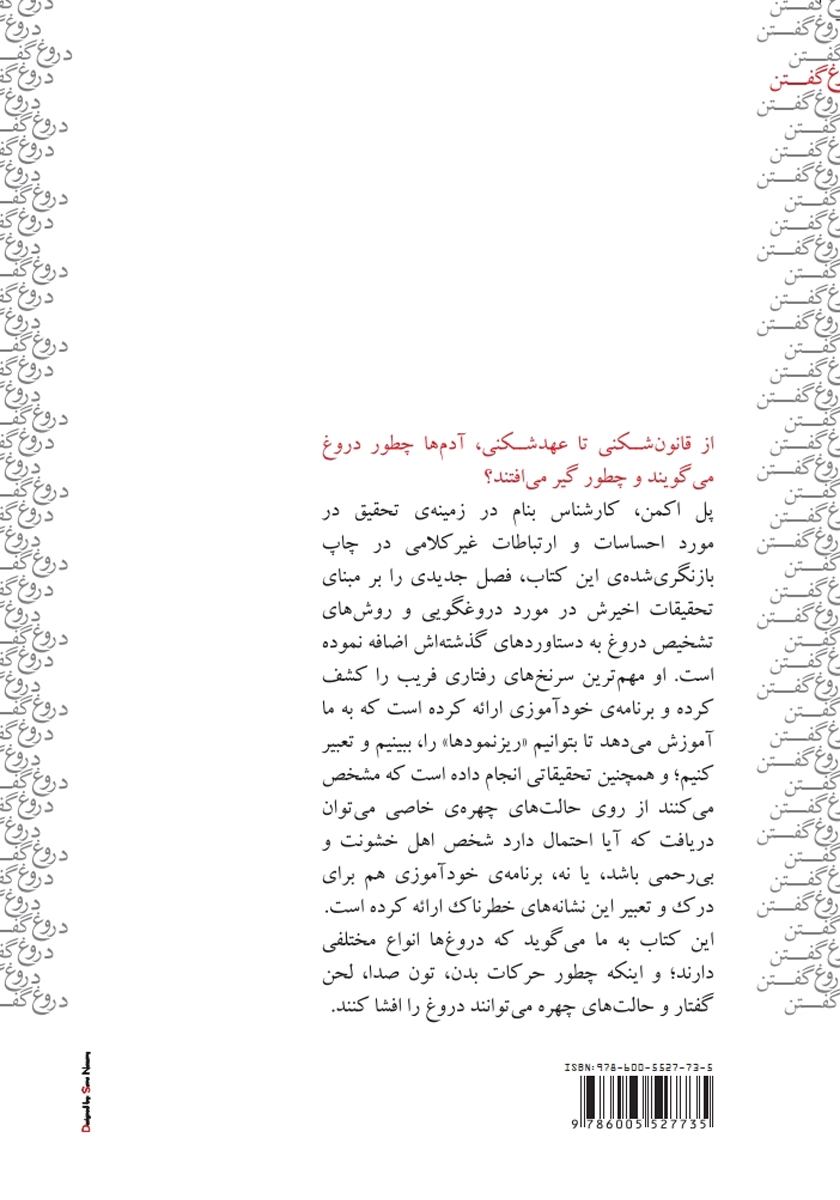 از قانون‌شکنی تا عهدشکنی، آدم‌ها چطور دروغ
می‌گویند و چطور گیر می‌افتند؟
پل اکمن، کارشناس بنام در زمینه‌ی تحقیق در
مورد احساسات و ارتباطات غیرکلامی در چاپ
بازنگری‌شده‌ی این کتاب، فصل جدیدی را بر مبنای
تحقیقات اخیرش در مورد دروغگویی و روش‌های
تشخیص دروغ به دستاوردهای گذشته‌اش اضافه نموده
است. او مهم‌ترین سرنخ‌های رفتاری فریب را کشف
کرده و برنامه‌ی خودآموزی ارائه کرده است که به ما
آموزش می‌دهد تا بتوانیم «ریزنمودها» را، ببینیم و تعبیر
کنیم؛ و همچنین تحقیقاتی انجام داده است که مشخص
می‌کنند از روی حالت‌های چهره‌ی خاصی می‌توان
دریافت که آیا احتمال دارد شخص اهل خشونت و
بی‌رحمی باشد، یا نه، برنامه‌ی خودآموزی هم برای
درک و تعبیر این نشانه‌های خطرناک ارائه کرده است.
این کتاب به ما می‌گوید که دروغ‌ها انواع مختلفی
دارند؛ و اینکه چطور حرکات بدن، تون صدا، لحن
گفتار و حالت‌های چهره می‌توانند دروغ را افشا کنند.
ISBN:978-600-5527-73-5
9 786005 527735
Designed by: